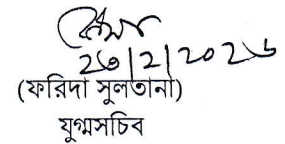 ২৩|২|২০২৬
(ফরিদা সুলতানা)
যুগ্মসচিব